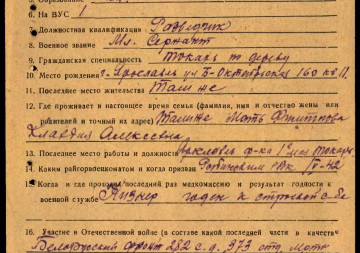 6. На ВУС 1
7. Должностная квалификация Разведчик
8. Военное звание Мл. Сержант
9. Гражданская специальность Токарь по дереву
10. Место рождения г. Ярославль ул. Октябрьская 160 кв. 11
11. Последнее место жительства Там же
12. Где проживает в настоящее время семья (фамилия, имя и отчество жены или
родителя и точный их адрес) Там же Мать Филиппова
Клавдия Алексеевна
13. Последнее место работы и должность Ярославль ф-ка Токарь
14. Каким райгорвоенкоматом и когда призван РВК IV-42
15. Когда и где проходил последний раз медкомиссию и результат годности к
военной службе годен к строевой с-бе
16. Участие в Отечественной войне (в составе какой последней части, в качестве
Белорусский фронт 282 с.д. 973 отд.